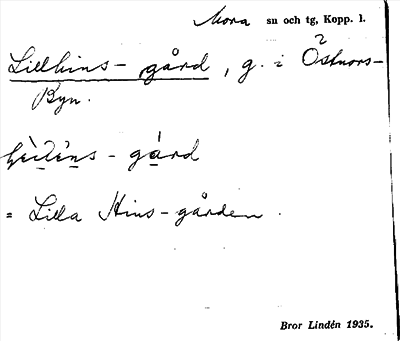 Mora sn och tg, Kopp. l.
Lillhins-gård, g. i Östnors-
Byn.
- gård
= Lilla Hins-gården.
Bror Lindén 1935.